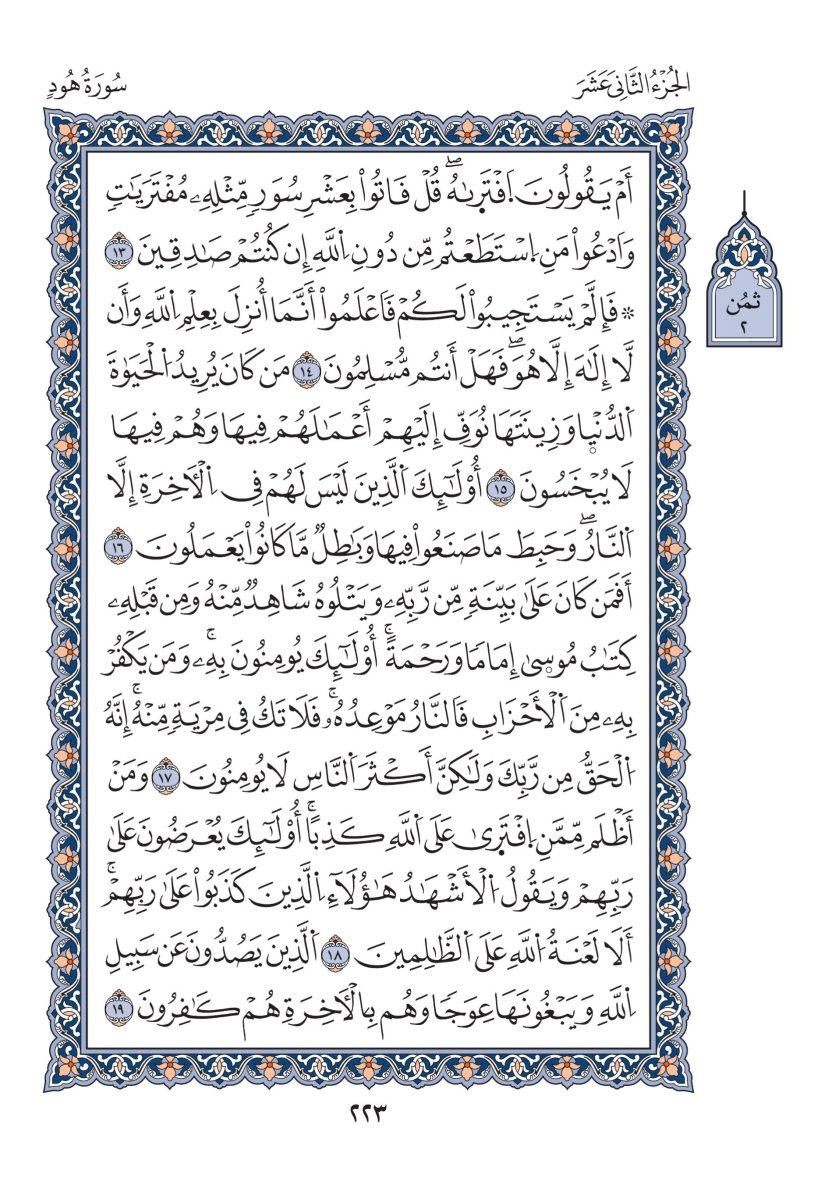 الجُزْءُ الثَّانِي عَشَرَ
سُورَةُ هُودٍ
أَمْ يَقُولُونَ اَ۪فْتَر۪ىٰهُۖ قُلْ فَاتُواْ بِعَشْرِ سُوَرٖ مِّثْلِهِۦ مُفْتَرَيَٰتٖ
وَادْعُواْ مَنِ اِ۪سْتَطَعْتُم مِّن دُونِ اِ۬للَّهِ إِن كُنتُمْ صَٰدِقِينَ ١٣
۞ فَإِلَّمْ يَسْتَجِيبُواْ لَكُمْ فَاعْلَمُواْ أَنَّمَا أُنزِلَ بِعِلْمِ اِ۬للَّهِ وَأَن
لَّا إِلَٰهَ إِلَّا هُوَۖ فَهَلْ أَنتُم مُّسْلِمُونَ ١٤ مَن كَانَ يُرِيدُ اُ۬لْحَيَوٰةَ
اَ۬لدُّنْي۪ا وَزِينَتَهَا نُوَفِّ إِلَيْهِمْ أَعْمَٰلَهُمْ فِيهَا وَهُمْ فِيهَا
لَا يُبْخَسُونَ ١٥ أُوْلَٰٓئِكَ اَ۬لَّذِينَ لَيْسَ لَهُمْ فِى اِ۬لْأٓخِرَةِ إِلَّا
اَ۬لنَّارُۖ وَحَبِطَ مَا صَنَعُواْ فِيهَا وَبَٰطِلٞ مَّا كَانُواْ يَعْمَلُونَ ١٦
أَفَمَن كَانَ عَلَىٰ بَيِّنَةٖ مِّن رَّبِّهِۦ وَيَتْلُوهُ شَاهِدٞ مِّنْهُ وَمِن قَبْلِهِۦ
كِتَٰبُ مُوس۪ىٰ إِمَامٗا وَرَحْمَةًۚ أُوْلَٰٓئِكَ يُومِنُونَ بِهِۦۚ وَمَن يَكْفُرْ
بِهِۦ مِنَ اَ۬لْأَحْزَابِ فَالنَّارُ مَوْعِدُهُۥۚ فَلَا تَكُ فِى مِرْيَةٖ مِّنْهُۚ إِنَّهُ
اُ۬لْحَقُّ مِن رَّبِّكَ وَلَٰكِنَّ أَكْثَرَ اَ۬لنَّاسِ لَا يُومِنُونَ ١٧ وَمَنْ
أَظْلَم مِّمَّنِ اِ۪فْتَر۪ىٰ عَلَى اَ۬للَّهِ كَذِباًۚ أُوْلَٰٓئِكَ يُعْرَضُونَ عَلَىٰ
رَبِّهِمْ وَيَقُولُ اُ۬لْأَشْهَٰدُ هَٰٓؤُلَآءِ اِ۬لَّذِينَ كَذَبُواْ عَلَىٰ رَبِّهِمْۚ
أَلَا لَعْنَةُ اُ۬للَّهِ عَلَى اَ۬لظَّٰلِمِينَ ١٨ اَ۬لَّذِينَ يَصُدُّونَ عَن سَبِيلِ
اِ۬للَّهِ وَيَبْغُونَهَا عِوَجٗا وَهُم بِالْأٓخِرَةِ هُمْ كَٰفِرُونَ ١٩
ثُمُن
٢
٢٢٣